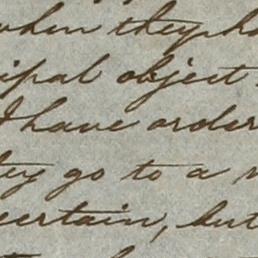 when they ha
ipal object
I have order
ey go to a
certain, but